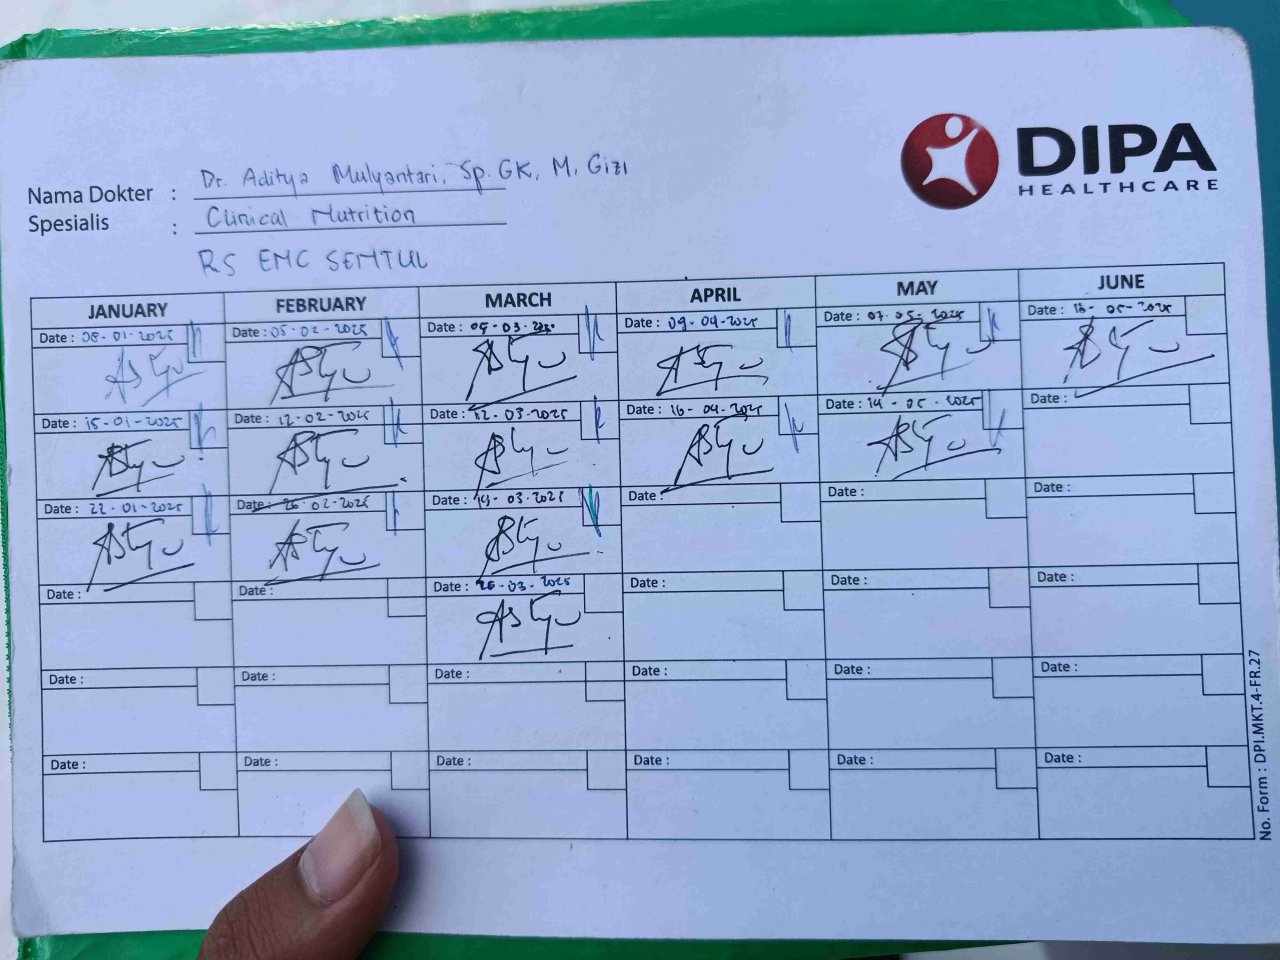 DIPA
HEALTHCARE
Nama Dokter : Dr. Aditya Mulyantari, Sp. GK, M. Gizi
Spesialis : Clinical Nutrition
RS EMC SENTUL
JANUARY FEBRUARY MARCH APRIL MAY JUNE
Date : 08-01-2025 Date : 05-02-2025 Date : 05-03-2025 Date : 09-04-2025 Date : 07-05-2025 Date : 18-05-2025
Date : 15-01-2025 Date : 12-02-2025 Date : 12-03-2025 Date : 16-04-2025 Date : 14-05-2025 Date :
Date : 22-01-2025 Date : 26-02-2025 Date : 19-03-2025 Date : Date : Date :
Date : Date : Date : 26-03-2025 Date : Date : Date :
Date : Date : Date : Date : Date : Date :
Date : Date : Date : Date : Date : Date :
No. Form : DPI.MKT.4-FR.27